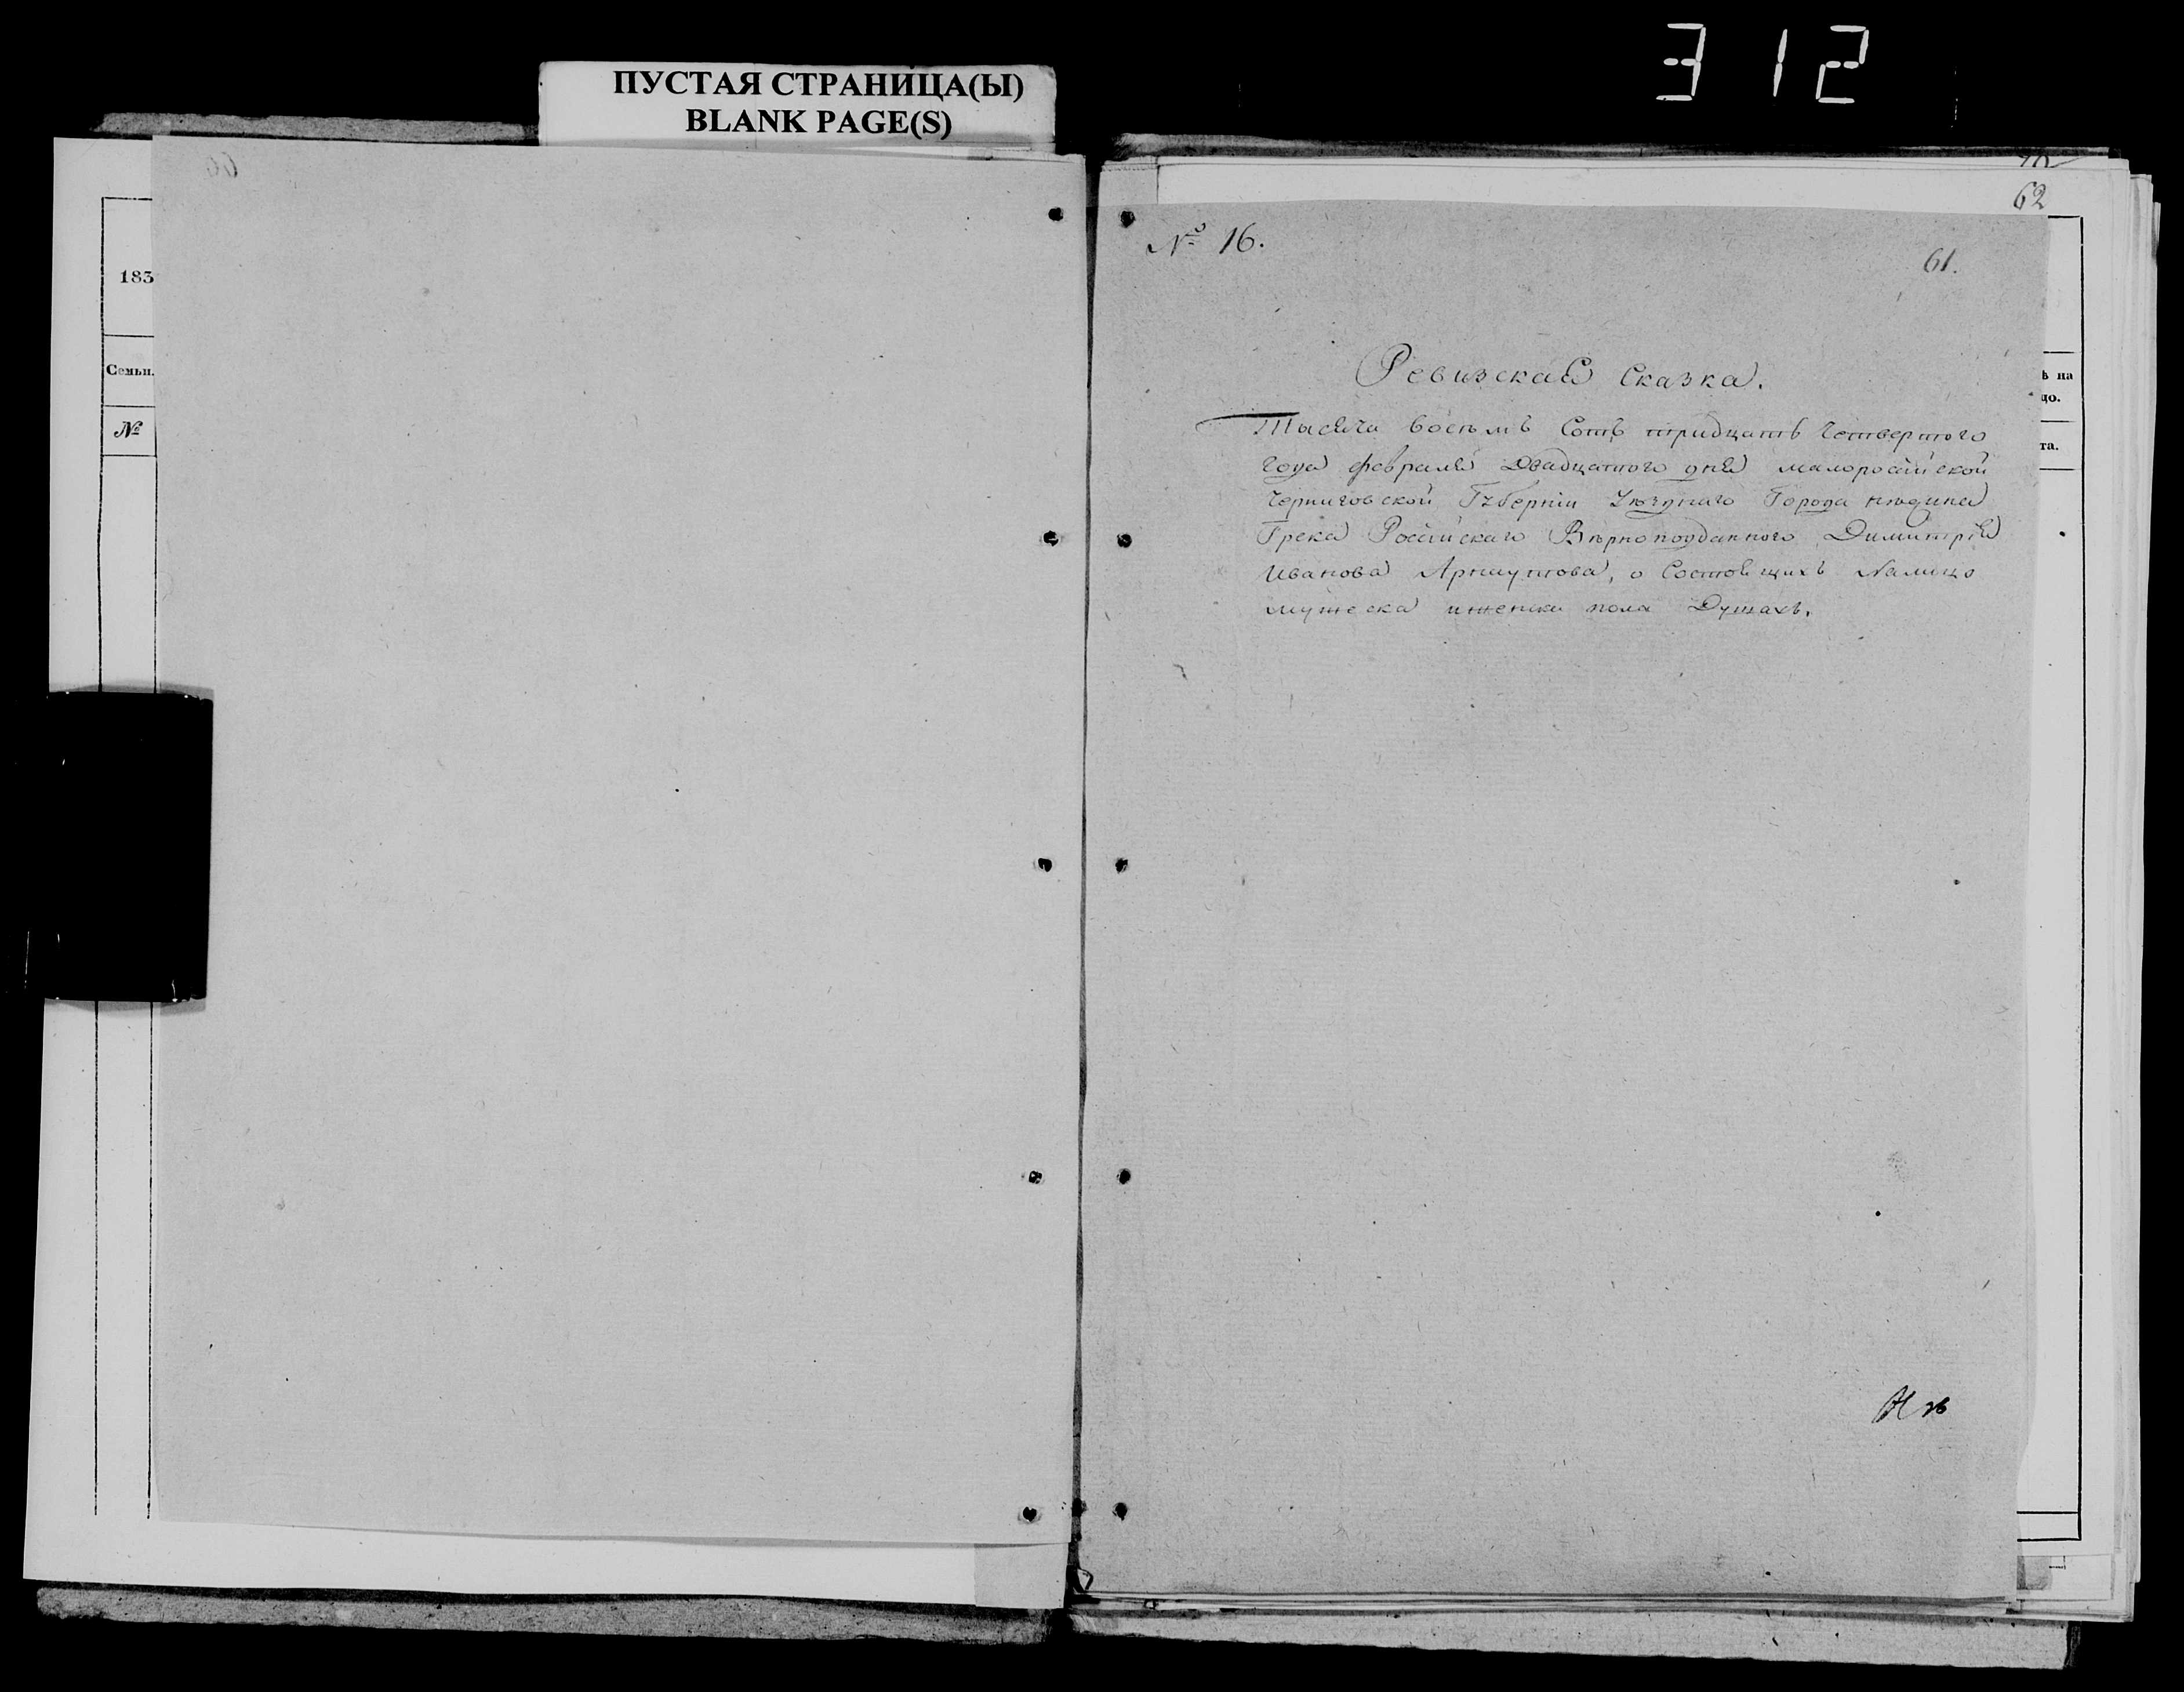 312
ПУСТАЯ СТРАНИЦА(Ы)
BLANK PAGE(S)
183
Семьи.
№
62
№ 16.
61.
Ревизская Сказка.
Тысяча восѣмъ Сотъ тридцать Четвертого
Года февраля Двадцатого дня малоросійской
Черниговской Губерніи Уѣзднаго Города нѣжина
Грека Російскаго Вѣрноподданного Димитрія
Иванова Арнаутова, о Состоящихъ Налицо
мужеска иженска пола Душахъ.
ѣ на
цо.
та.